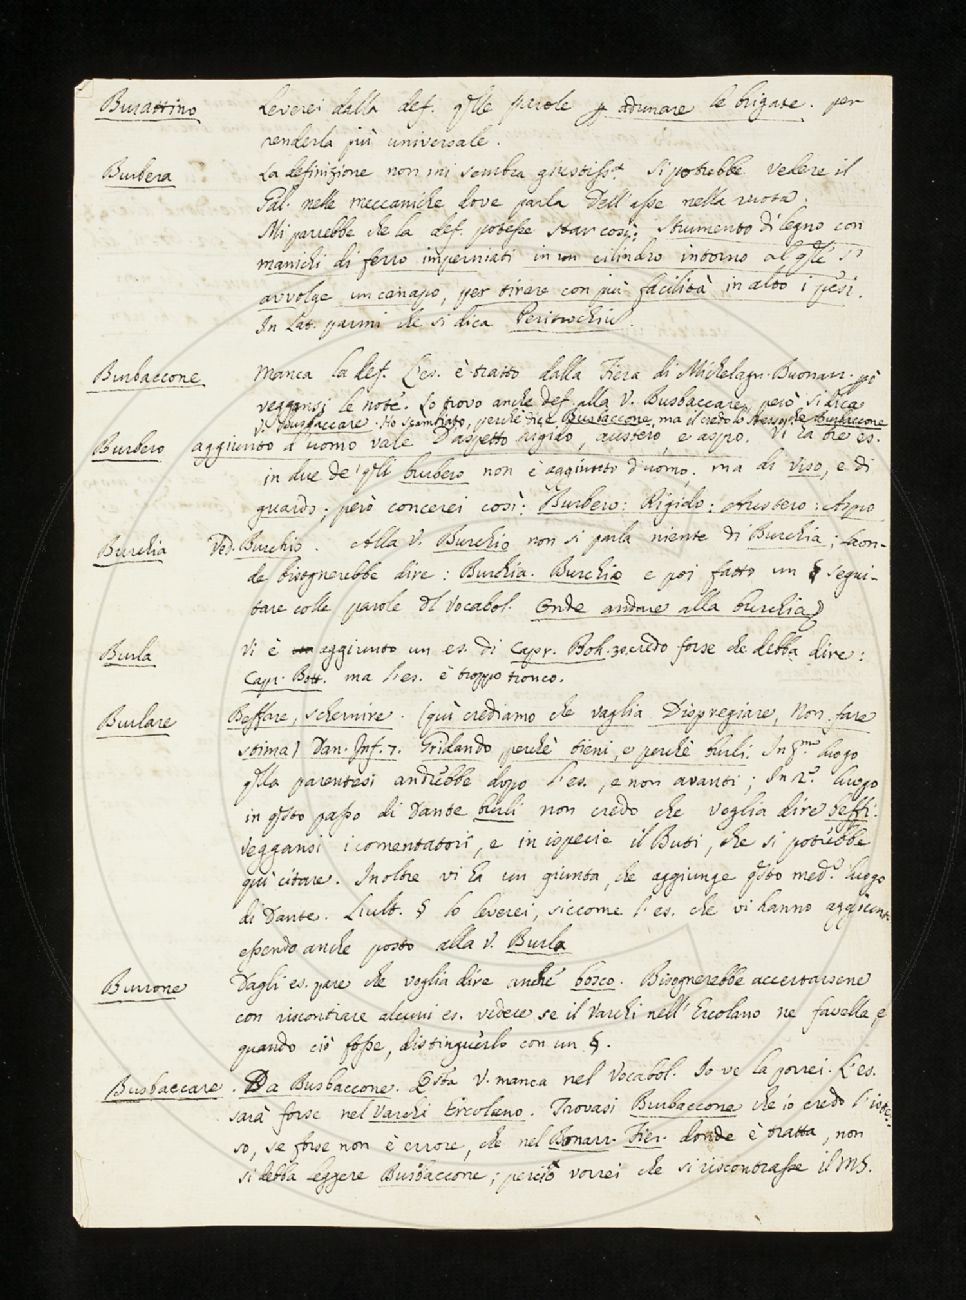 Burattino Leverei dalla def. qlle parole p adunare le brigate. per
renderla più universale.
Burbera La definizione non mi sembra giustiss.ª Si potrebbe vedere il
Gal. nelle meccaniche dove parla dell'asse nella ruota.
Mi parrebbe che la def. potesse star così: Strumento di legno con
manichi di ferro imperniati in un cilindro intorno al qle si
avvolge un canapo, per tirare con più facilità in alto i pesi.
In Lat. parmi che si dica Peritrochiu.
Burbaccone Manca la def. L'es. è tratto dalla Fiera di Michelagn. Buonarr. però
veggansi le note. Lo trovo anche def. alla V. Busbaccare, però si dica
V. Busbaccare. Ho scambiato, perchè dice Busbaccone, ma il credo lo stesso che Burbaccone
Burbero aggiunto d'uomo vale D'aspetto rigido, austero, e aspro. Vi ha tre es.
in due de' qli burbero non è aggiunto d'uomo, ma di viso, e di
guardo; però concerei così: Burbero: Rigido: Austero: Aspro
Burchia Ved. Burchio. Alla V. Burchio non si parla niente di Burchia; laon-
de bisognerebbe dire: Burchia. Burchio e poi fatto un § segui-
tare colle parole dl Vocabol. Onde andare alla burchia
Burla Vi è aggiunto un es. di Capr. Boh. 30. credo forse che debba dire:
Capr. Bott. ma l'es. è troppo tronco.
Burlare Beffare, schernire. (qui crediamo che vaglia Dispregiare, Non fare
stima) Dan. Inf. 7. Gridando perchè tieni, e perchè burli. In pmo luogo
qlla parentesi andrebbe dopo l'es., e non avanti; In 2º. luogo
in qsto passo di Dante burli non credo che voglia dire beffi.
Veggansi i comentatori, e in ispecie il Buti, che si potrebbe
qui citare. Inoltre vi ha un giunta, che aggiunge qsto med.º luogo
di Dante. L'ult. § lo leverei, siccome l'es. che vi hanno aggiunt.
essendo anche posto alla V. Burla
Burrone Dagli es. pare che voglia dire anche bosco. Bisognerebbe accertarsene
con riscontrare alcuni es. vedere se il Varchi nell'Ercolano ne favella, e
quando ciò fosse, distinguerlo con un §.
Busbaccare. Da Busbaccone. Qsta V. manca nel Vocabol. Io ve la porrei. L'es.
sarà forse nel Varchi Ercolano. Trovasi Burbaccone che io credo l'istes-
so, se forse non è errore, che nel Bonarr. Fier. donde è tratta, non
si debba leggere Busbaccone; perciò vorrei che si riscontrasse il MS.